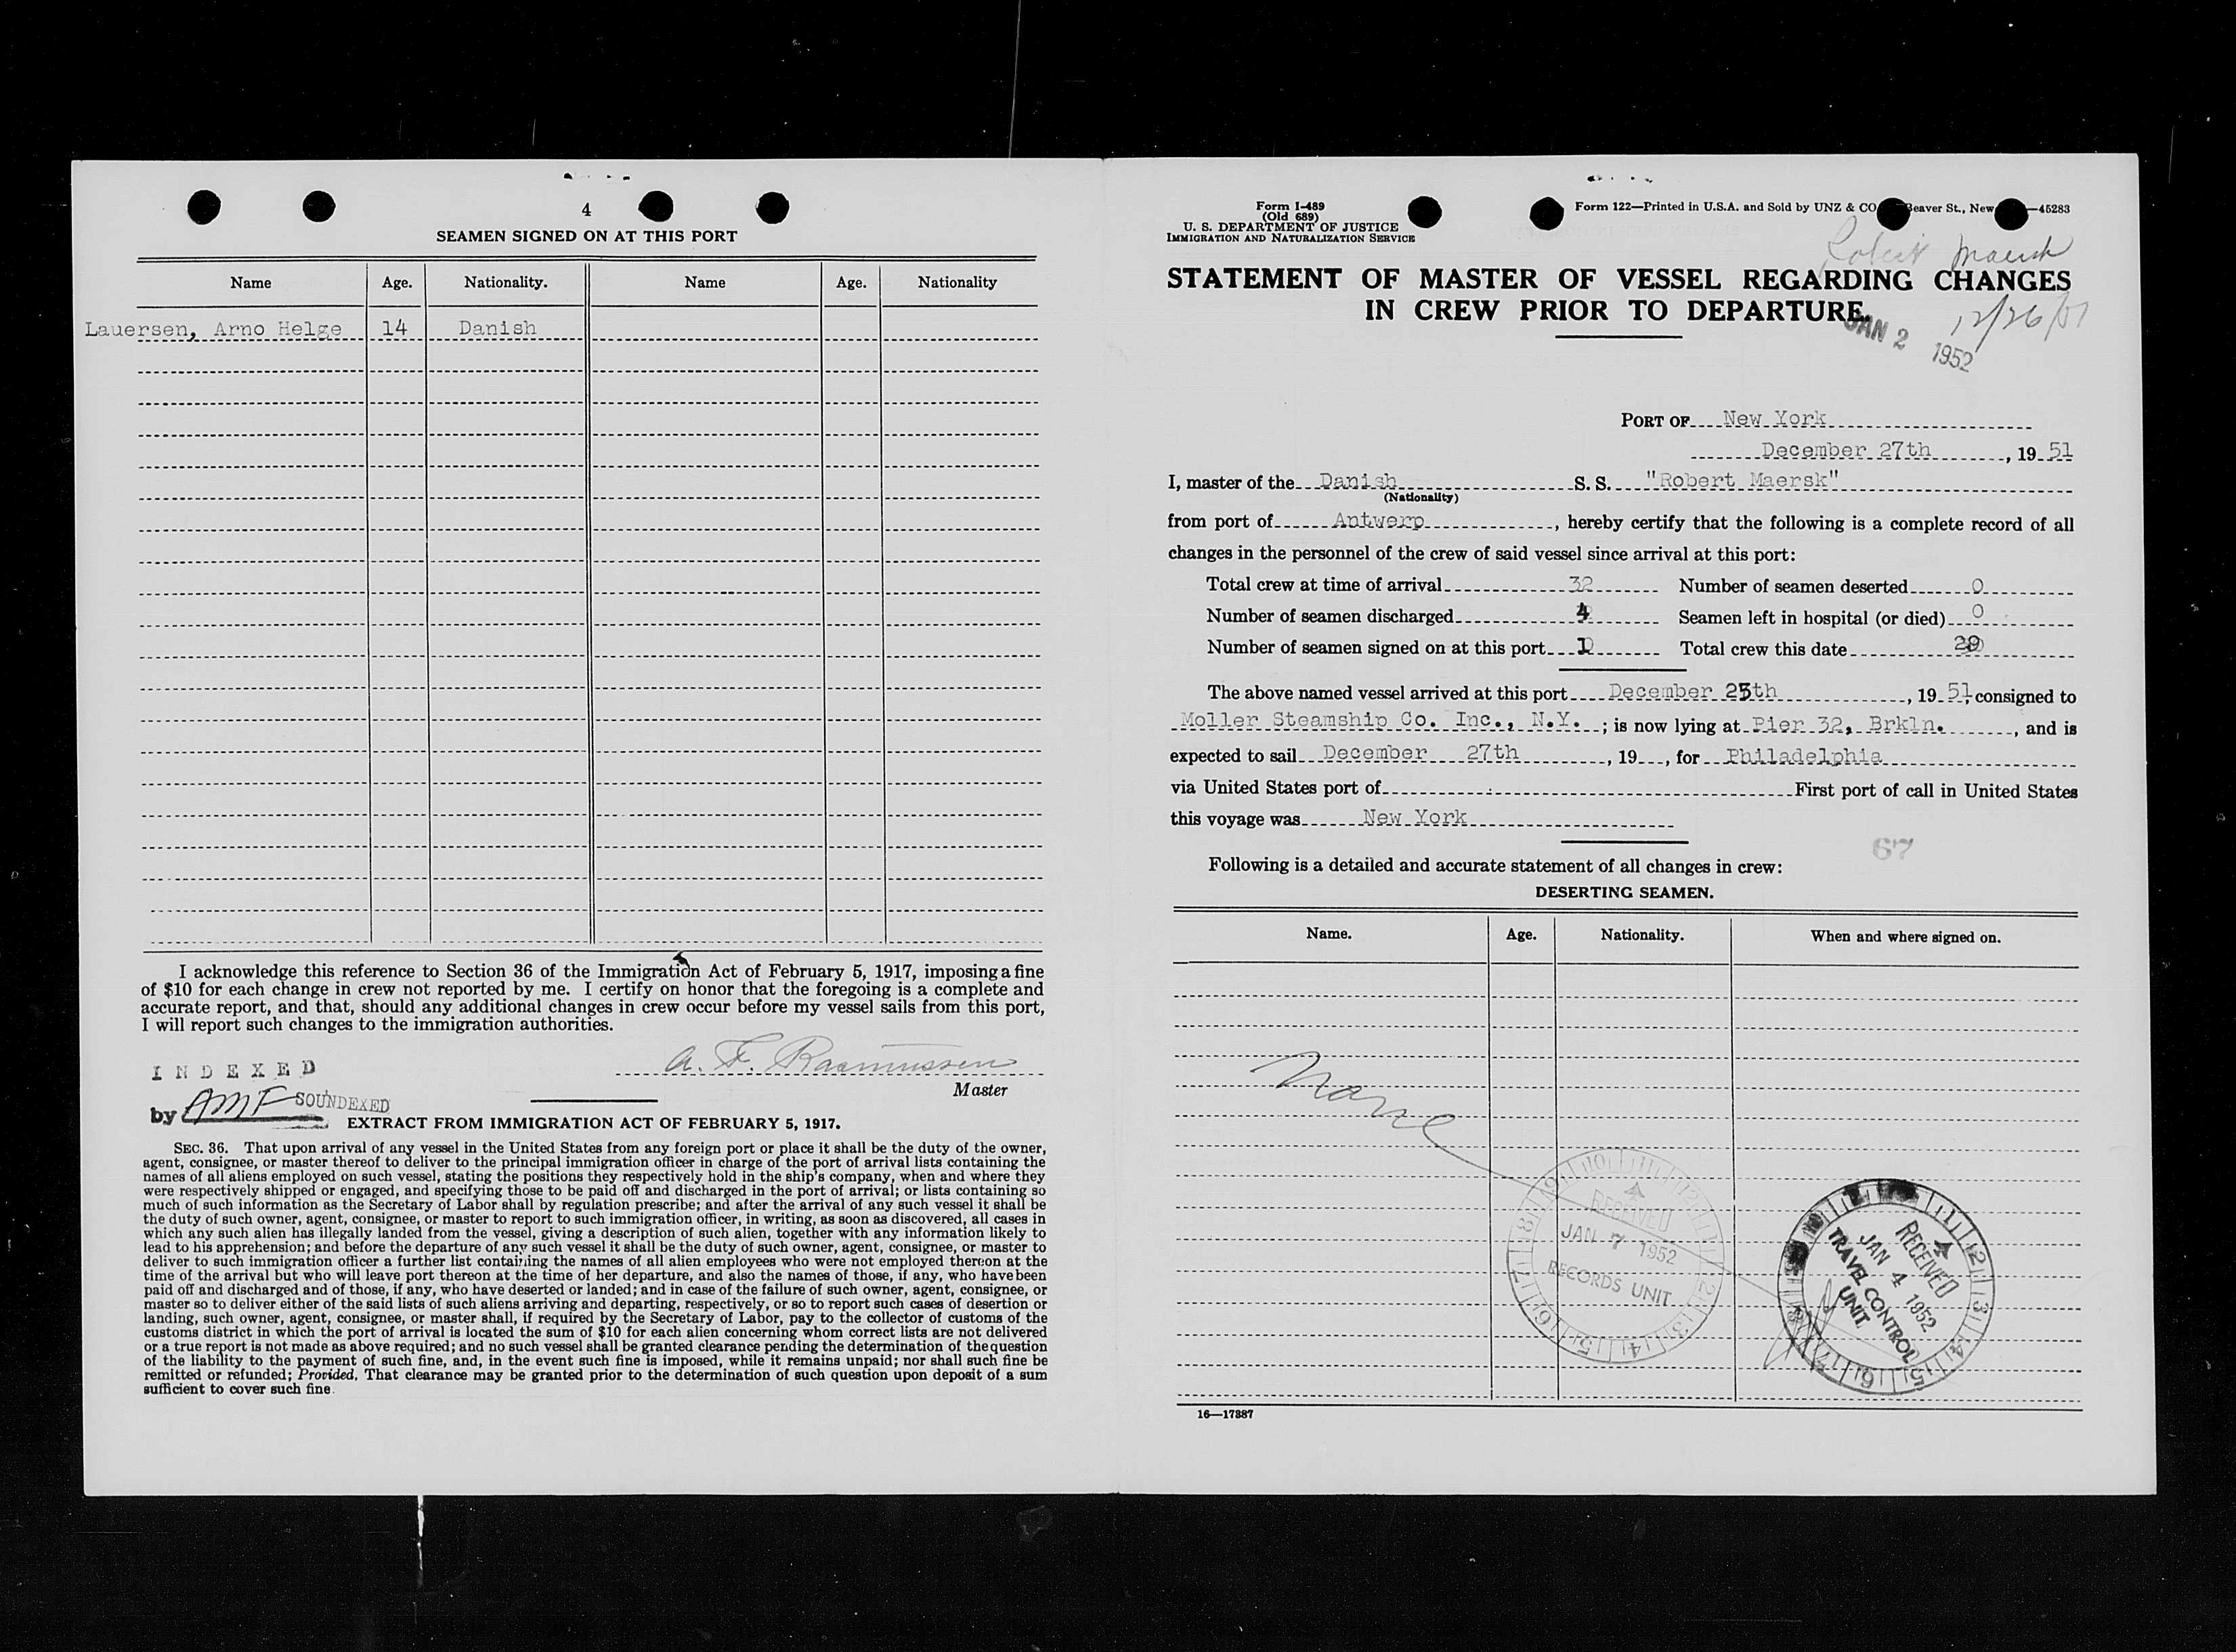 4
SEAMEN SIGNED ON AT THIS PORT
Name Age. Nationality. Name Age. Nationality
Lauersen, Arno Helge 14 Danish
I acknowledge this reference to Section 36 of the Immigration Act of February 5, 1917, imposing a fine
of $10 for each change in crew not reported by me. I certify on honor that the foregoing is a complete and
accurate report, and that, should any additional changes in crew occur before my vessel sails from this port,
I will report such changes to the immigration authorities.
A. F. Rasmussen
Master
INDEXED
by AMF SOUNDEXED
EXTRACT FROM IMMIGRATION ACT OF FEBRUARY 5, 1917.
SEC. 36. That upon arrival of any vessel in the United States from any foreign port or place it shall be the duty of the owner,
agent, consignee, or master thereof to deliver to the principal immigration officer in charge of the port of arrival lists containing the
names of all aliens employed on such vessel, stating the positions they respectively hold in the ship's company, when and where they
were respectively shipped or engaged, and specifying those to be paid off and discharged in the port of arrival; or lists containing so
much of such information as the Secretary of Labor shall by regulation prescribe; and after the arrival of any such vessel it shall be
the duty of such owner, agent, consignee, or master to report to such immigration officer, in writing, as soon as discovered, all cases in
which any such alien has illegally landed from the vessel, giving a description of such alien, together with any information likely to
lead to his apprehension; and before the departure of any such vessel it shall be the duty of such owner, agent, consignee, or master to
deliver to such immigration officer a further list containing the names of all alien employees who were not employed thereon at the
time of the arrival but who will leave port thereon at the time of her departure, and also the names of those, if any, who have been
paid off and discharged and of those, if any, who have deserted or landed; and in case of the failure of such owner, agent, consignee, or
master so to deliver either of the said lists of such aliens arriving and departing, respectively, or so to report such cases of desertion or
landing, such owner, agent, consignee, or master shall, if required by the Secretary of Labor, pay to the collector of customs of the
customs district in which the port of arrival is located the sum of $10 for each alien concerning whom correct lists are not delivered
or a true report is not made as above required; and no such vessel shall be granted clearance pending the determination of the question
of the liability to the payment of such fine, and, in the event such fine is imposed, while it remains unpaid; nor shall such fine be
remitted or refunded; Provided, That clearance may be granted prior to the determination of such question upon deposit of a sum
sufficient to cover such fine.
Form I-489
(Old 689)
U. S. DEPARTMENT OF JUSTICE
IMMIGRATION AND NATURALIZATION SERVICE
Form 122—Printed in U.S.A. and Sold by UNZ & CO Beaver St., New —45283
Robert Maersk
STATEMENT OF MASTER OF VESSEL REGARDING CHANGES
IN CREW PRIOR TO DEPARTURE
12/26/51
JAN 2 1952
PORT OF New York
December 27th, 19 51
I, master of the Danish S. S. "Robert Maersk"
(Nationality)
from port of Antwerp, hereby certify that the following is a complete record of all
changes in the personnel of the crew of said vessel since arrival at this port:
Total crew at time of arrival 32 Number of seamen deserted 0
Number of seamen discharged 4 Seamen left in hospital (or died) 0
Number of seamen signed on at this port 1 Total crew this date 29
The above named vessel arrived at this port December 25th, 19 51, consigned to
Moller Steamship Co. Inc., N.Y.; is now lying at Pier 32, Brkln., and is
expected to sail December 27th, 19, for Philadelphia
via United States port of First port of call in United States
this voyage was New York
67
Following is a detailed and accurate statement of all changes in crew:
DESERTING SEAMEN.
Name. Age. Nationality. When and where signed on.
None
RECEIVED
JAN 7 1952
RECORDS UNIT
RECEIVED
JAN 4 1952
TRAVEL CONTROL
UNIT
16—17387